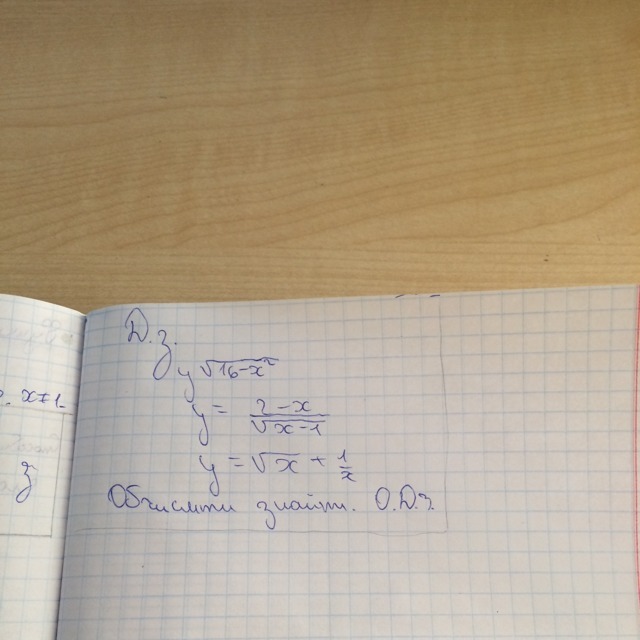 Д.з.
y √16-x²
y = 2-x / √x-1
y = √x + 1/x
Обчислити знайти. О.D.з.
x≠1
з